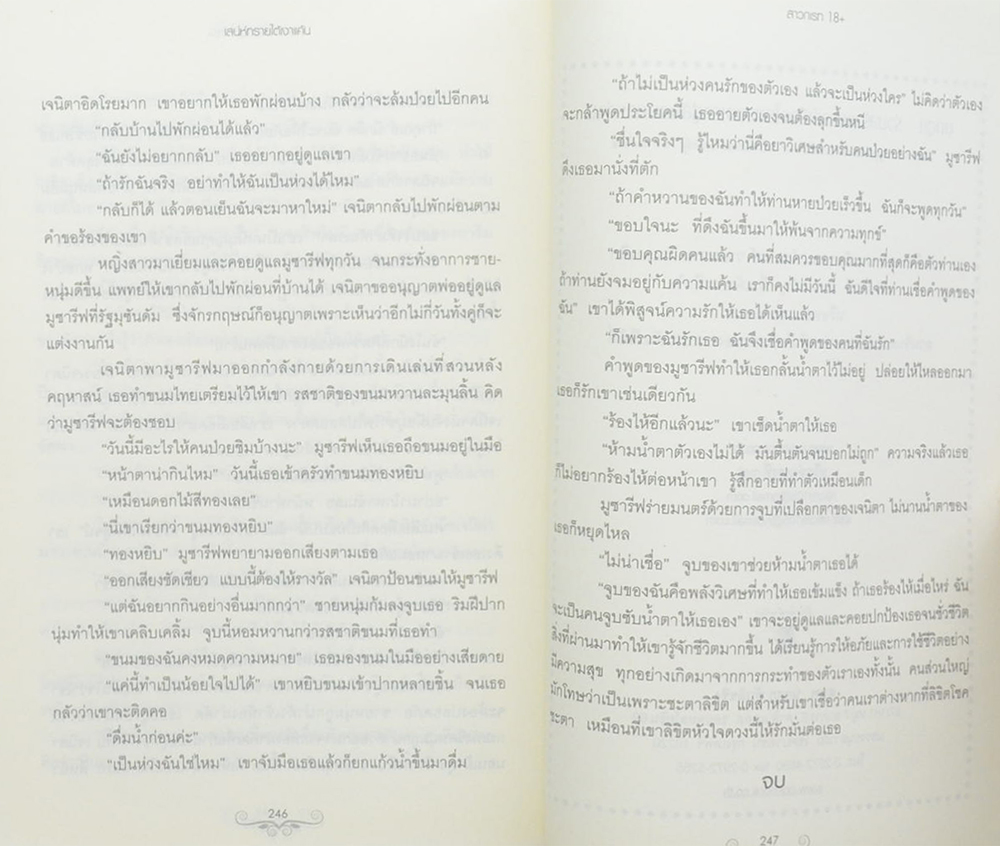 เสน่ห์ทรายใต้เงาแค้น
เจนิตาอิดโรยมาก เขาอยากให้เธอพักผ่อนบ้าง กลัวว่าจะล้มป่วยไปอีกคน
“กลับบ้านไปพักผ่อนได้แล้ว”
“ฉันยังไม่อยากกลับ” เธออยากอยู่ดูแลเขา
“ถ้ารักฉันจริง อย่าทำให้ฉันเป็นห่วงได้ไหม”
“กลับก็ได้ แล้วตอนเย็นฉันจะมาหาใหม่” เจนิตากลับไปพักผ่อนตาม
คำขอร้องของเขา
หญิงสาวมาเยี่ยมและคอยดูแลมูซารีฟทุกวัน จนกระทั่งอาการชาย-
หนุ่มดีขึ้น แพทย์ให้เขากลับไปพักผ่อนที่บ้านได้ เจนิตาขออนุญาตพ่ออยู่ดูแล
มูซารีฟที่รัฐมุซันดัม ซึ่งจักรกฤษณ์ก็อนุญาตเพราะเห็นว่าอีกไม่กี่วันทั้งคู่ก็จะ
แต่งงานกัน
เจนิตาพามูซารีฟมาออกกำลังกายด้วยการเดินเล่นที่สวนหลัง
คฤหาสน์ เธอทำขนมไทยเตรียมไว้ให้เขา รสชาติของขนมหวานละมุนลิ้น คิด
ว่ามูซารีฟจะต้องชอบ
“วันนี้มีอะไรให้คนป่วยชิมบ้างนะ” มูซารีฟเห็นเธอถือขนมอยู่ในมือ
“หน้าตาน่ากินไหม” วันนี้เธอเข้าครัวทำขนมทองหยิบ
“เหมือนดอกไม้สีทองเลย”
“นี่เขาเรียกว่าขนมทองหยิบ”
“ทองหยิบ” มูซารีฟพยายามออกเสียงตามเธอ
“ออกเสียงชัดเชียว แบบนี้ต้องให้รางวัล” เจนิตาป้อนขนมให้มูซารีฟ
“แต่ฉันอยากกินอย่างอื่นมากกว่า” ชายหนุ่มก้มลงจูบเธอ ริมฝีปาก
นุ่มทำให้เขาเคลิบเคลิ้ม จูบนี้หอมหวานกว่ารสชาติขนมที่เธอทำ
“ขนมของฉันคงหมดความหมาย” เธอมองขนมในมืออย่างเสียดาย
“แค่นี้ทำเป็นน้อยใจไปได้” เขาหยิบขนมเข้าปากหลายชิ้น จนเธอ
กลัวว่าเขาจะติดคอ
“ดื่มน้ำก่อนค่ะ”
“เป็นห่วงฉันใช่ไหม” เขาจับมือเธอแล้วก็ยกแก้วน้ำขึ้นมาดื่ม
246
สาวกเรท 18+
“ถ้าไม่เป็นห่วงคนรักของตัวเอง แล้วจะเป็นห่วงใคร” ไม่คิดว่าตัวเอง
จะกล้าพูดประโยคนี้ เธออายตัวเองจนต้องลุกขึ้นหนี
“ชื่นใจจริงๆ รู้ไหมว่านี่คือยาวิเศษสำหรับคนป่วยอย่างฉัน” มูซารีฟ
ดึงเธอมานั่งที่ตัก
“ถ้าคำหวานของฉันทำให้ท่านหายป่วยเร็วขึ้น ฉันก็จะพูดทุกวัน”
“ขอบใจนะ ที่ดึงฉันขึ้นมาให้พ้นจากความทุกข์”
“ขอบคุณผิดคนแล้ว คนที่สมควรขอบคุณมากที่สุดก็คือตัวท่านเอง
ถ้าท่านยังจมอยู่กับความแค้น เราก็คงไม่มีวันนี้ ฉันดีใจที่ท่านเชื่อคำพูดของ
ฉัน” เขาได้พิสูจน์ความรักให้เธอได้เห็นแล้ว
“ก็เพราะฉันรักเธอ ฉันจึงเชื่อคำพูดของคนที่ฉันรัก”
คำพูดของมูซารีฟทำให้เธอกลั้นน้ำตาไว้ไม่อยู่ ปล่อยให้ไหลออกมา
เธอก็รักเขาเช่นเดียวกัน
“ร้องไห้อีกแล้วนะ” เขาเช็ดน้ำตาให้เธอ
“ห้ามน้ำตาตัวเองไม่ได้ มันตื้นตันจนบอกไม่ถูก” ความจริงแล้วเธอ
ก็ไม่อยากร้องไห้ต่อหน้าเขา รู้สึกอายที่ทำตัวเหมือนเด็ก
มูซารีฟร่ายมนตร์ด้วยการจูบที่เปลือกตาของเจนิตา ไม่นานน้ำตาของ
เธอก็หยุดไหล
“ไม่น่าเชื่อ” จูบของเขาช่วยห้ามน้ำตาเธอได้
“จูบของฉันคือพลังวิเศษที่ทำให้เธอเข้มแข็ง ถ้าเธอร้องไห้เมื่อไหร่ ฉัน
จะเป็นคนจูบซับน้ำตาให้เธอเอง” เขาจะอยู่ดูแลและคอยปกป้องเธอจนชั่วชีวิต
สิ่งที่ผ่านมาทำให้เขารู้จักชีวิตมากขึ้น ได้เรียนรู้การให้อภัยและการใช้ชีวิตอย่าง
มีความสุข ทุกอย่างเกิดมาจากการกระทำของตัวเราเองทั้งนั้น คนส่วนใหญ่
มักโทษว่าเป็นเพราะชะตาลิขิต แต่สำหรับเขาเชื่อว่าคนเราต่างหากที่ลิขิตโชค
ชะตา เหมือนที่เขาลิขิตหัวใจดวงนี้ให้รักมั่นต่อเธอ
จบ
247